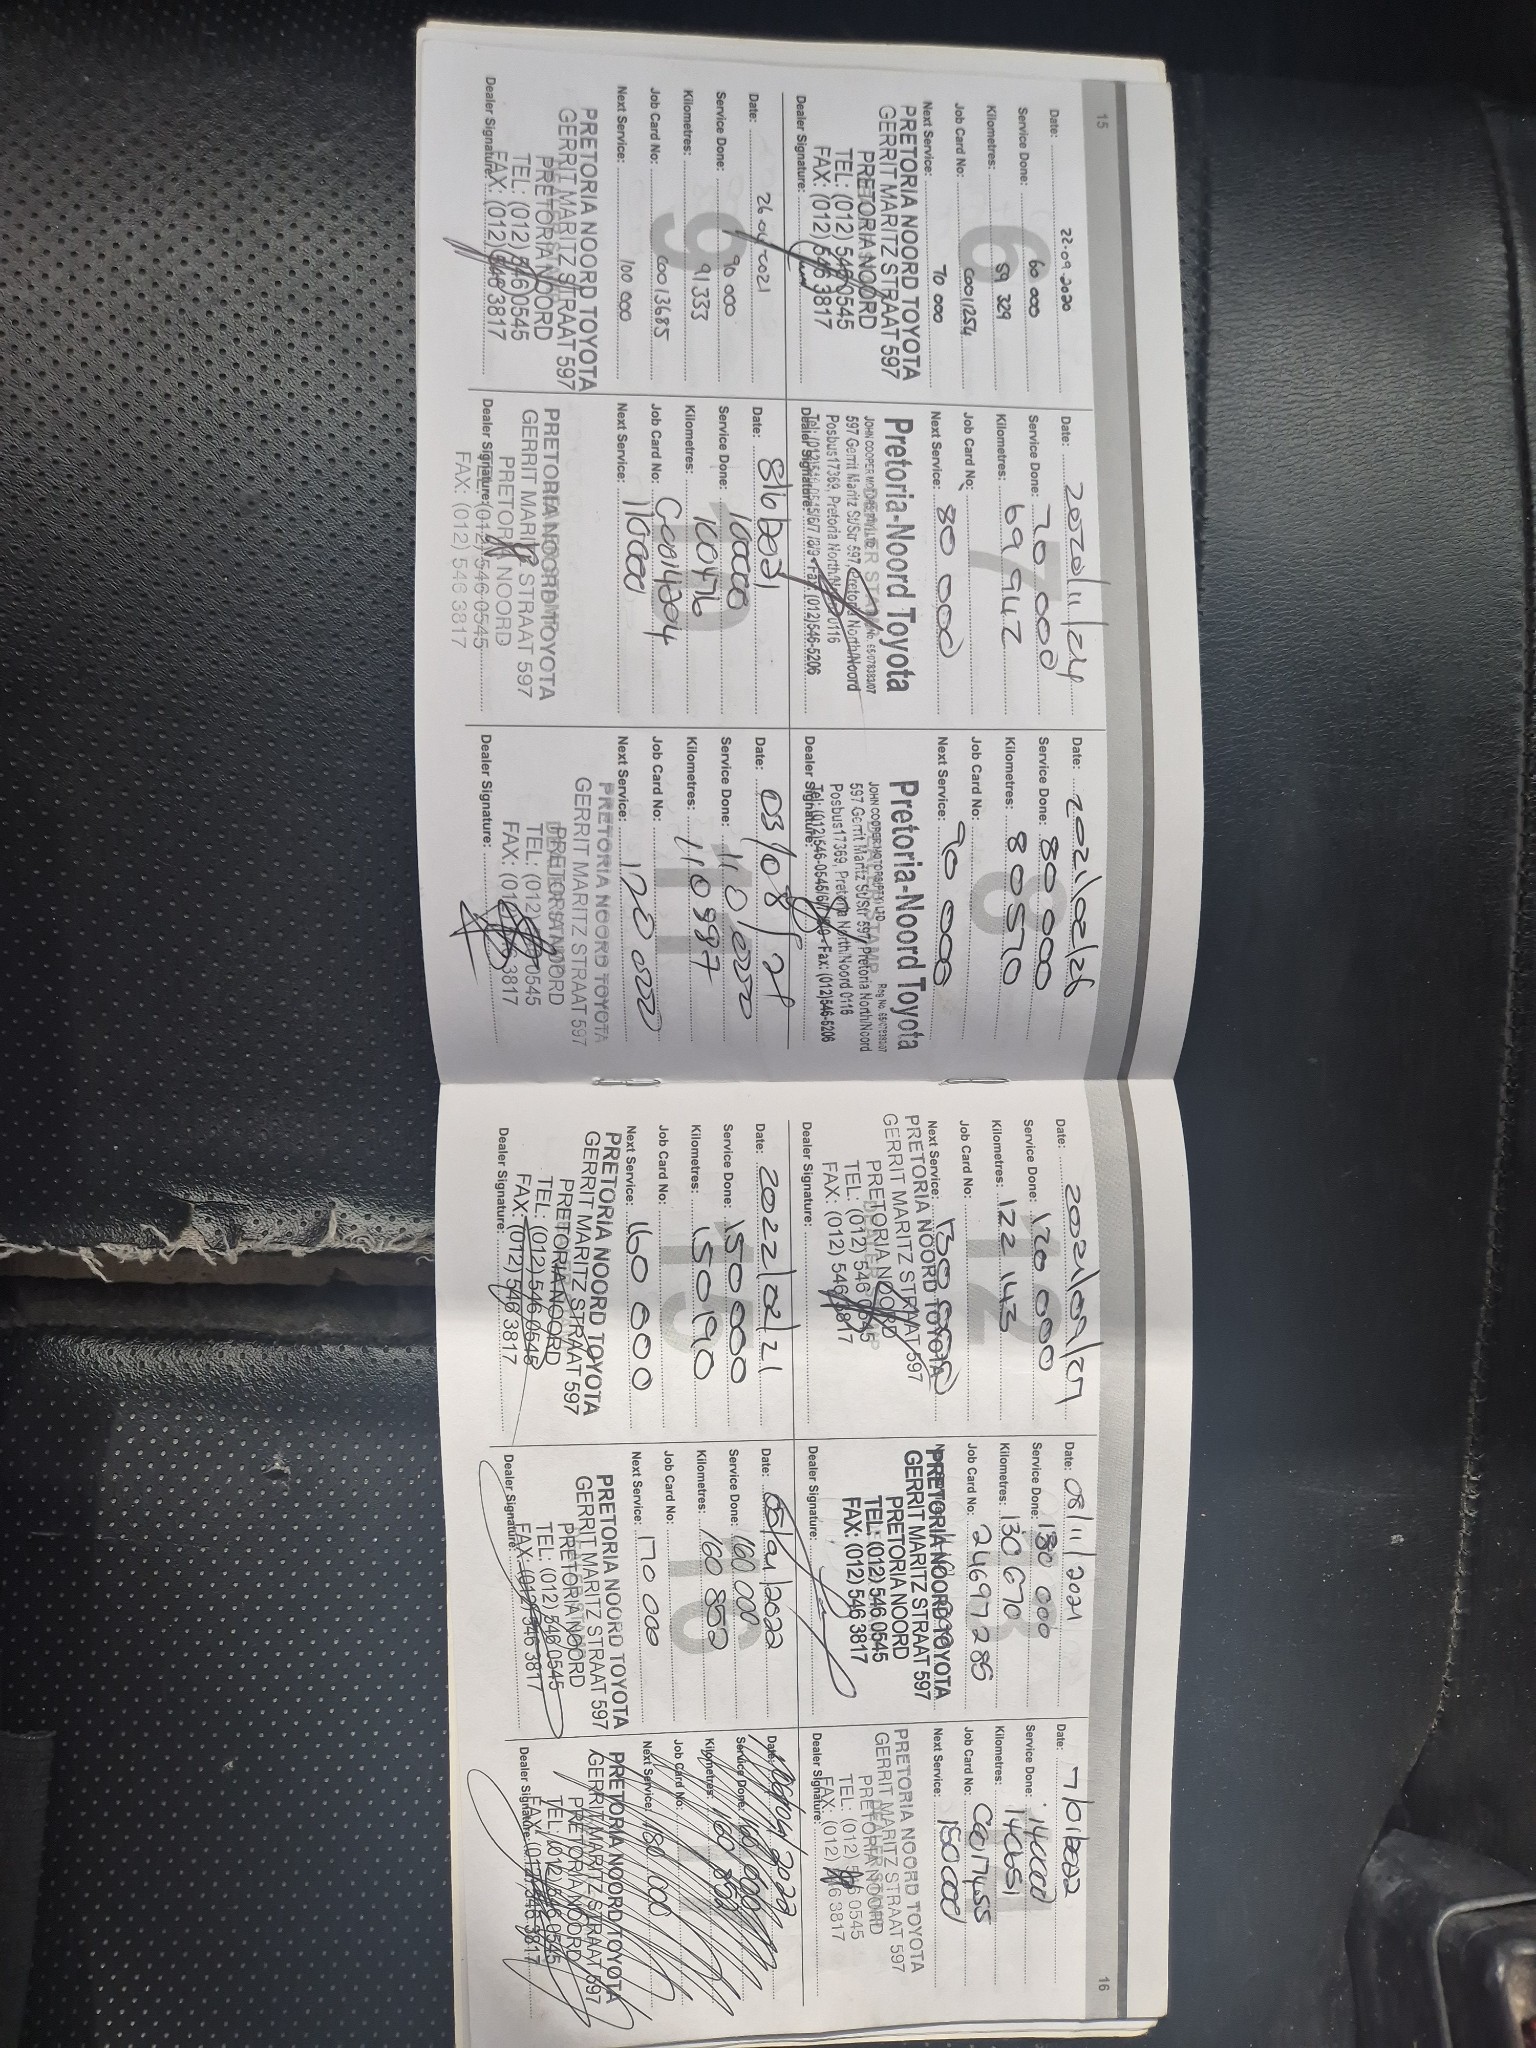 15
Date: 22-09-2020
Service Done: 60 000
Kilometres: 59 329
Job Card No: C0011254
Next Service: 70 000
PRETORIA NOORD TOYOTA
GERRIT MARITZ STRAAT 597
PRETORIA NOORD
TEL: (012) 546 0545
FAX: (012) 546 3817
Dealer Signature:
Date: 2020/11/24
Service Done: 70 000
Kilometres: 69 942
Job Card No:
Next Service: 80 000
Pretoria-Noord Toyota
597 Gerrit Maritz St/Str 597, Pretoria North/Noord
Posbus 17369, Pretoria North/Noord 0116
Tel: (012)546-0545/6/7/8/9 • Fax: (012)546-5206
Dealer Signature:
Date: 2021/02/26
Service Done: 80 000
Kilometres: 80570
Job Card No:
Next Service: 90 000
Pretoria-Noord Toyota
597 Gerrit Maritz St/Str 597, Pretoria North/Noord
Posbus 17369, Pretoria North/Noord 0116
Tel: (012)546-0545/6/7/8/9 • Fax: (012)546-5206
Dealer Signature:
Date: 26 04 2021
Service Done: 90 000
Kilometres: 91 333
Job Card No: C0013685
Next Service: 100 000
PRETORIA NOORD TOYOTA
GERRIT MARITZ STRAAT 597
PRETORIA NOORD
TEL: (012) 546 0545
FAX: (012) 546 3817
Dealer Signature:
Date: 8/6/2021
Service Done: 100000
Kilometres: 100476
Job Card No: C0014204
Next Service: 110000
PRETORIA NOORD TOYOTA
GERRIT MARITZ STRAAT 597
PRETORIA NOORD
TEL: (012) 546 0545
FAX: (012) 546 3817
Dealer Signature:
Date: 03/08/21
Service Done: 110 000
Kilometres: 110 987
Job Card No:
Next Service: 120 000
PRETORIA NOORD TOYOTA
GERRIT MARITZ STRAAT 597
PRETORIA NOORD
TEL: (012) 546 0545
FAX: (012) 546 3817
Dealer Signature:
16
Date: 2021/09/27
Service Done: 120 000
Kilometres: 122 143
Job Card No:
Next Service: 130 000
PRETORIA NOORD TOYOTA
GERRIT MARITZ STRAAT 597
PRETORIA NOORD
TEL: (012) 546 0545
FAX: (012) 546 3817
Dealer Signature:
Date: 08/11/2021
Service Done: 130 000
Kilometres: 130 670
Job Card No: 24697285
PRETORIA NOORD TOYOTA
GERRIT MARITZ STRAAT 597
PRETORIA NOORD
TEL: (012) 546 0545
FAX: (012) 546 3817
Dealer Signature:
Date: 7/01/2022
Service Done: 140000
Kilometres: 140651
Job Card No: C0017455
Next Service: 150000
PRETORIA NOORD TOYOTA
GERRIT MARITZ STRAAT 597
PRETORIA NOORD
TEL: (012) 546 0545
FAX: (012) 546 3817
Dealer Signature:
Date: 2022/02/21
Service Done: 150 000
Kilometres: 150190
Job Card No:
Next Service: 160 000
PRETORIA NOORD TOYOTA
GERRIT MARITZ STRAAT 597
PRETORIA NOORD
TEL: (012) 546 0545
FAX: (012) 546 3817
Dealer Signature:
Date: 05/04/2022
Service Done: 160 000
Kilometres: 160 852
Job Card No:
Next Service: 170 000
PRETORIA NOORD TOYOTA
GERRIT MARITZ STRAAT 597
PRETORIA NOORD
TEL: (012) 546 0545
FAX: (012) 546 3817
Dealer Signature:
Date:
Service Done:
Kilometres:
Job Card No:
Next Service:
PRETORIA NOORD TOYOTA
GERRIT MARITZ STRAAT 597
PRETORIA NOORD
TEL: (012) 546 0545
FAX: (012) 546 3817
Dealer Signature: